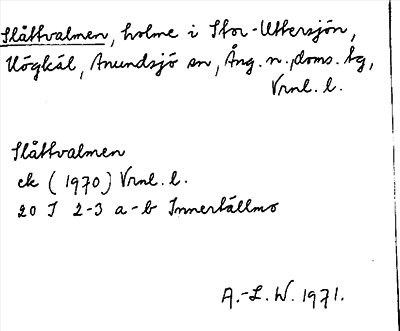 Slåttvalmen, holme i Stor-Uttersjön,
Högkål, Anundsjö sn, Ång. n. doms. tg,
Vrnl. l.
Slåttvalmen
ek (1970) Vrnl. l.
20 I 2-3 a-b Innertällmo
A.-L. W. 1971.